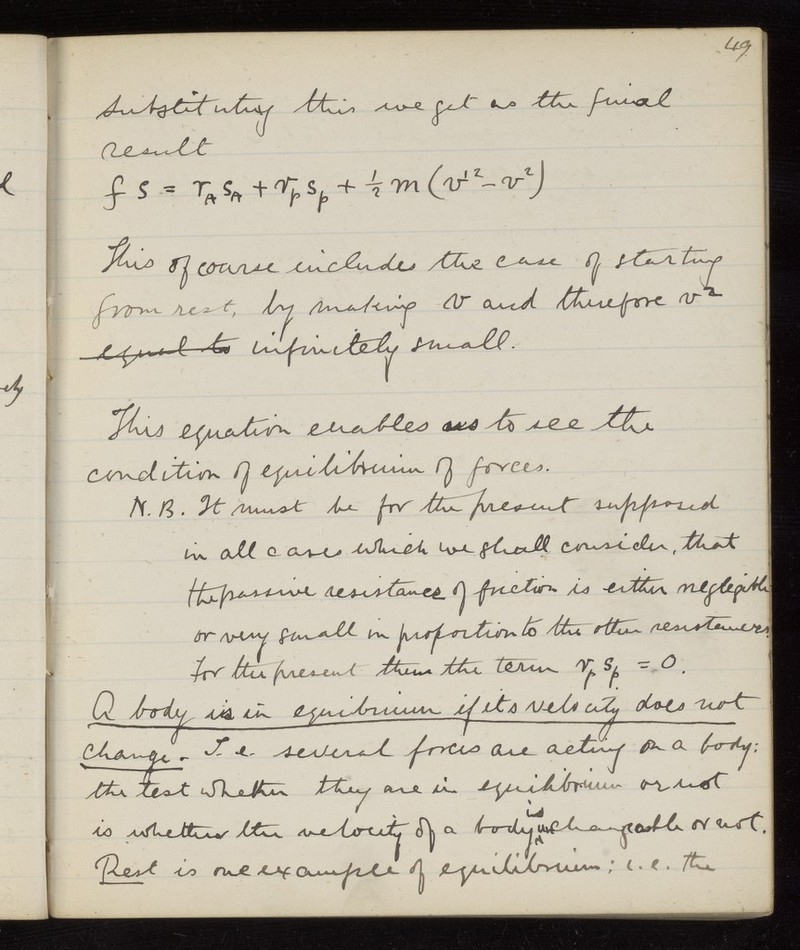 49
substituting this we get as the final
result
f S = r_A s_A + r_p s_p + ½ m (v'² - v²)
This of course includes the case of starting
from rest, by making v and therefore v²
equal to infinitely small.
This equation enables us to see the
condition of equilibrium of forces.
N.B. It must be for the present supposed
in all cases which we shall consider, that
the passive resistance of friction is either negligible
or very small in proportion to the other resistances
for the present then the term r_p s_p = 0.
A body is in equibrium if its velocity does not
change. I.e. several forces are acting on a body:
the test whether they are in equilibrium or not
is whether the velocity of a body is unchangeable or not.
Rest is one example of equilibrium; i.e. the